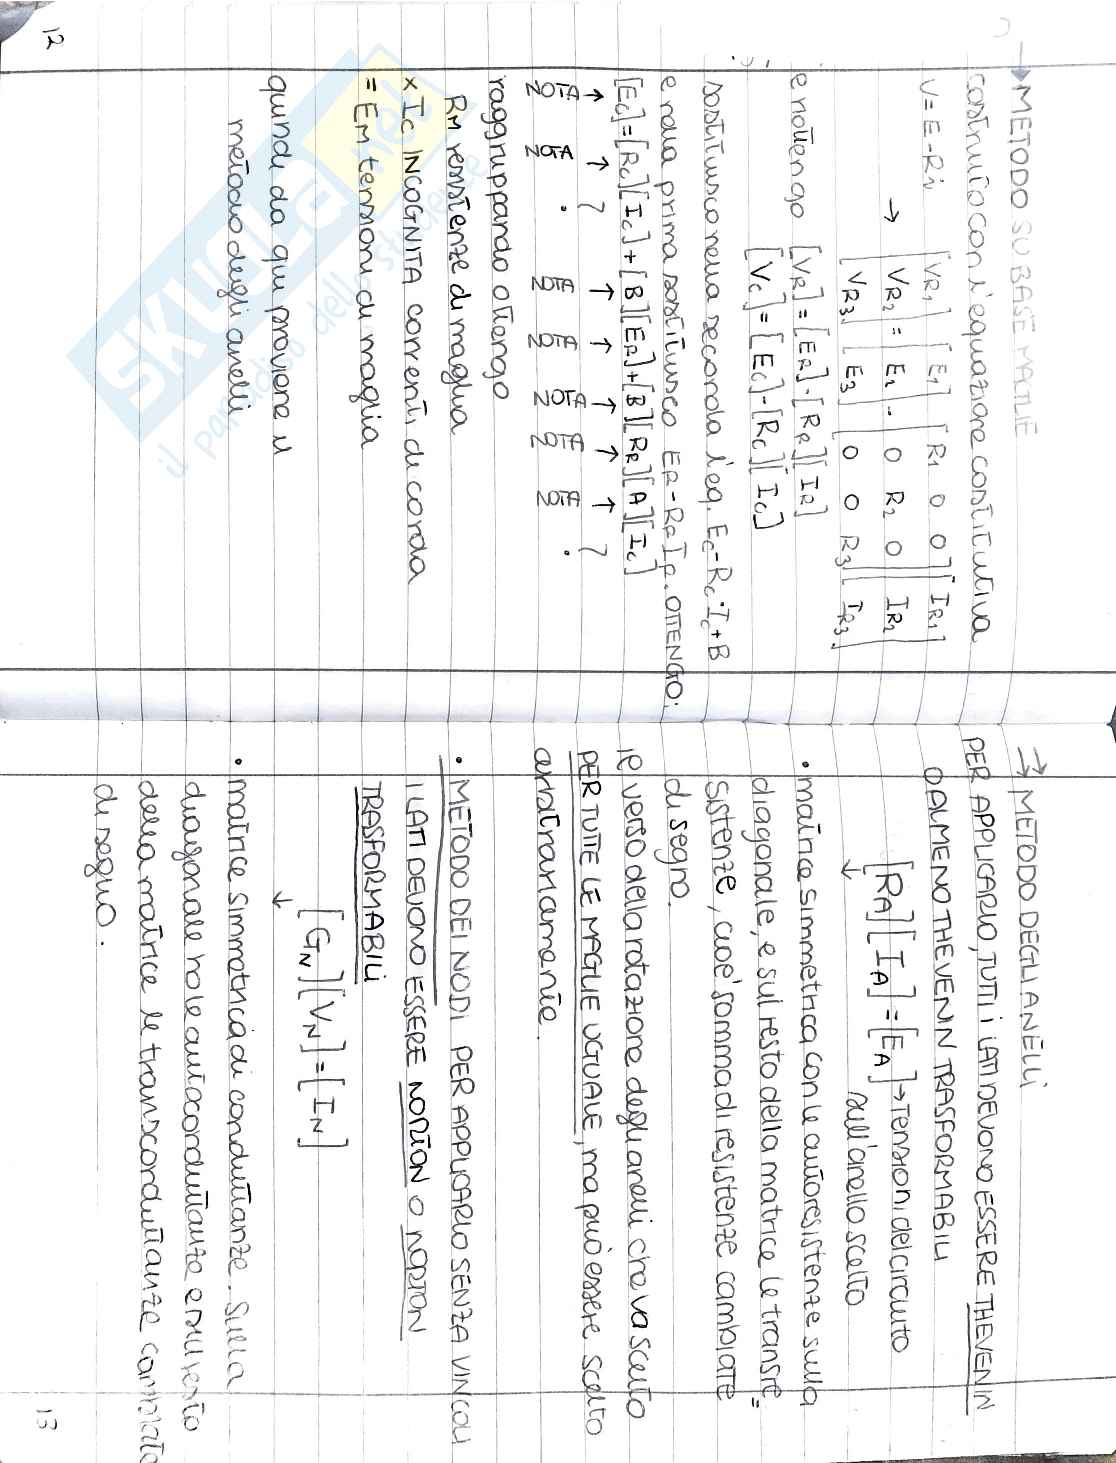 12
→ METODO SU BASE MAGLIE
costruito con l'equazione costitutiva
V=E-Ri [VR1] [E1] [R1 0 0] [IR1]
→ VR2 = E2 - 0 R2 0 IR2
[VR3] [E3] [0 0 R3] [IR3]
e riottengo [VR]=[ER]-[RR][IR]
[VC]=[EC]-[RC][IC]
sostituisco nella seconda l'eq. Ec-Rc·Ic+B
e nella prima sostituisco ER-RRIR. OTTENGO:
[Ec]=[Rc][Ic]+[B][ER]+[B][RR][A][Ic]
↑ ↑ ? ↑ ↑ ↑ ↑ ↑ ?
NOTA NOTA . NOTA NOTA NOTA NOTA NOTA .
raggruppando ottengo
RM resistenze di maglia
x Ic INCOGNITA correnti di corda
= EM tensioni di maglia
quindi da qui proviene il
metodo degli anelli
SKUOLA.net
il paradiso dello studente
→ METODO DEGLI ANELLI
PER APPLICARLO, TUTTI I LATI DEVONO ESSERE THEVENIN
O ALMENO THEVENIN TRASFORMABILI
[RA][IA]=[EA]→ tensioni del circuito
↓ sull'anello scelto
• matrice simmetrica con le autoresistenze sulla
diagonale, e sul resto della matrice le transre=
sistenze, cioè somma di resistenze cambiate
di segno.
le verso della rotazione degli anelli che va scelto
PER TUTTE LE MAGLIE UGUALE, ma può essere scelto
arbitrariamente.
• METODO DEI NODI PER APPLICARLO SENZA VINCOLI
I LATI DEVONO ESSERE NORTON O NORTON
TRASFORMABILI
[GN][VN]=[IN]
↓
• matrice simmetrica di conduttanze. Sulla
diagonale ho le autoconduttanze e sul resto
della matrice le transconduttanze cambiate
di segno.
13